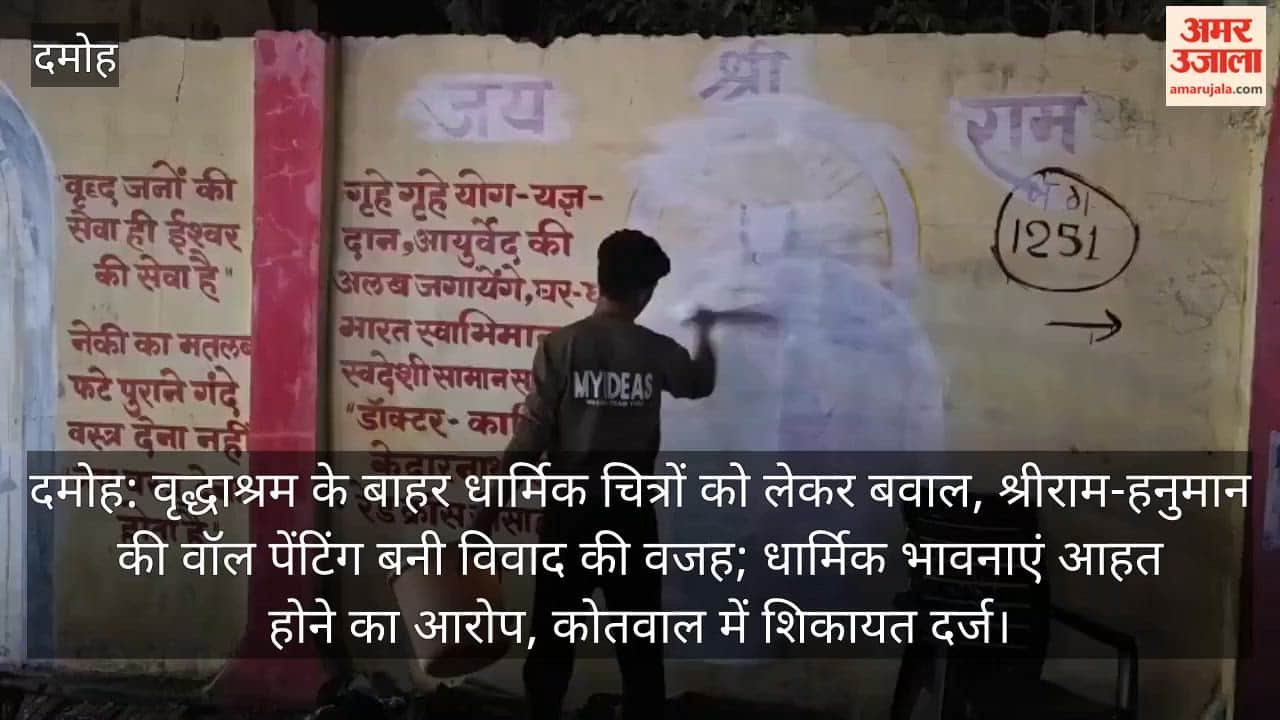 दमोह
अमर
उजाला
amarujala.com
जय श्री राम
वृद्ध जनों की
सेवा ही ईश्वर
की सेवा है"
नेकी का मतलब
फटे पुराने गंदे
वस्त्र देना नहीं
गृहे गृहे योग-यज्ञ-
दान,आयुर्वेद की
अलख जगायेंगे,घर-
भारत स्वाभिमान
स्वदेशी सामान
"डॉक्टर-
1251
MY IDEAS
दमोह: वृद्धाश्रम के बाहर धार्मिक चित्रों को लेकर बवाल, श्रीराम-हनुमान
की वॉल पेंटिंग बनी विवाद की वजह; धार्मिक भावनाएं आहत
होने का आरोप, कोतवाल में शिकायत दर्ज।